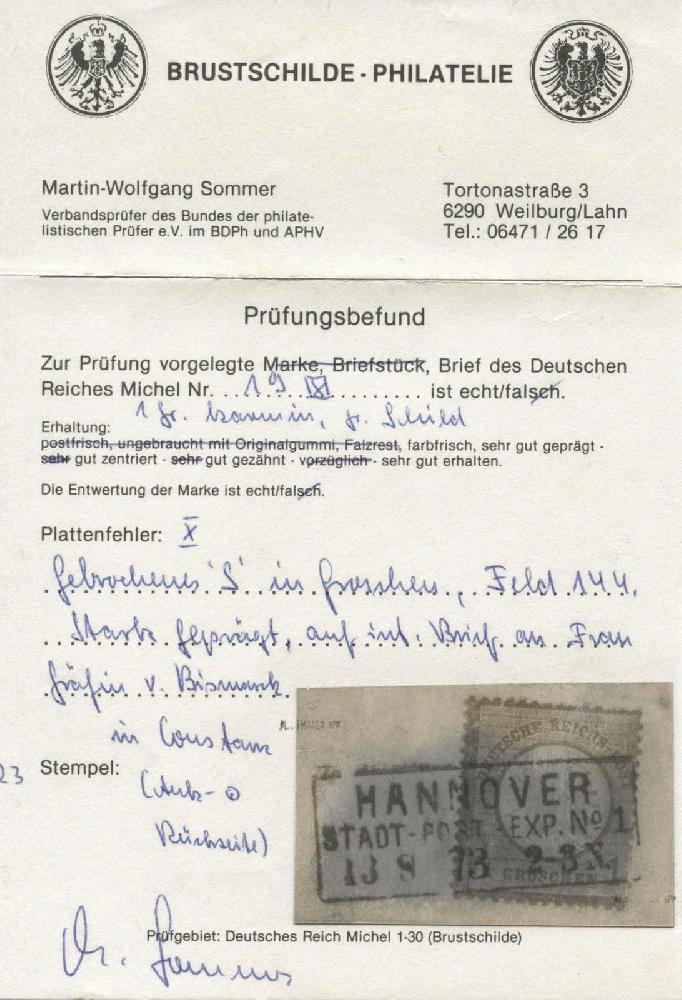 BRUSTSCHILDE - PHILATELIE
Martin-Wolfgang Sommer
Verbandsprüfer des Bundes der philate-
listischen Prüfer e.V. im BDPh und APHV
Tortonastraße 3
6290 Weilburg/Lahn
Tel.: 06471 / 26 17
Prüfungsbefund
Zur Prüfung vorgelegte Marke, Briefstück, Brief des Deutschen
Reiches Michel Nr. 19 IX ist echt/falsch.
1 Gr. karmin, gr. Schild
Erhaltung:
postfrisch, ungebraucht mit Originalgummi, Falzrest, farbfrisch, sehr gut geprägt -
sehr gut zentriert - sehr gut gezähnt - vorzüglich - sehr gut erhalten.
Die Entwertung der Marke ist echt/falsch.
Plattenfehler: X
Gebrochenes 'S' in Groschen, Feld 144.
Stark geprägt, auf int. Brief an Frau
Gräfin v. Bismarck
in Constanz
23 Stempel:
(Ank-o
Rückseite)
DEUTSCHE REICHS-
HANNOVER
STADT-POST-EXP. No 1
13 8 73 2-3 N.
1 GROSCHEN 1
Prüfgebiet: Deutsches Reich Michel 1-30 (Brustschilde)